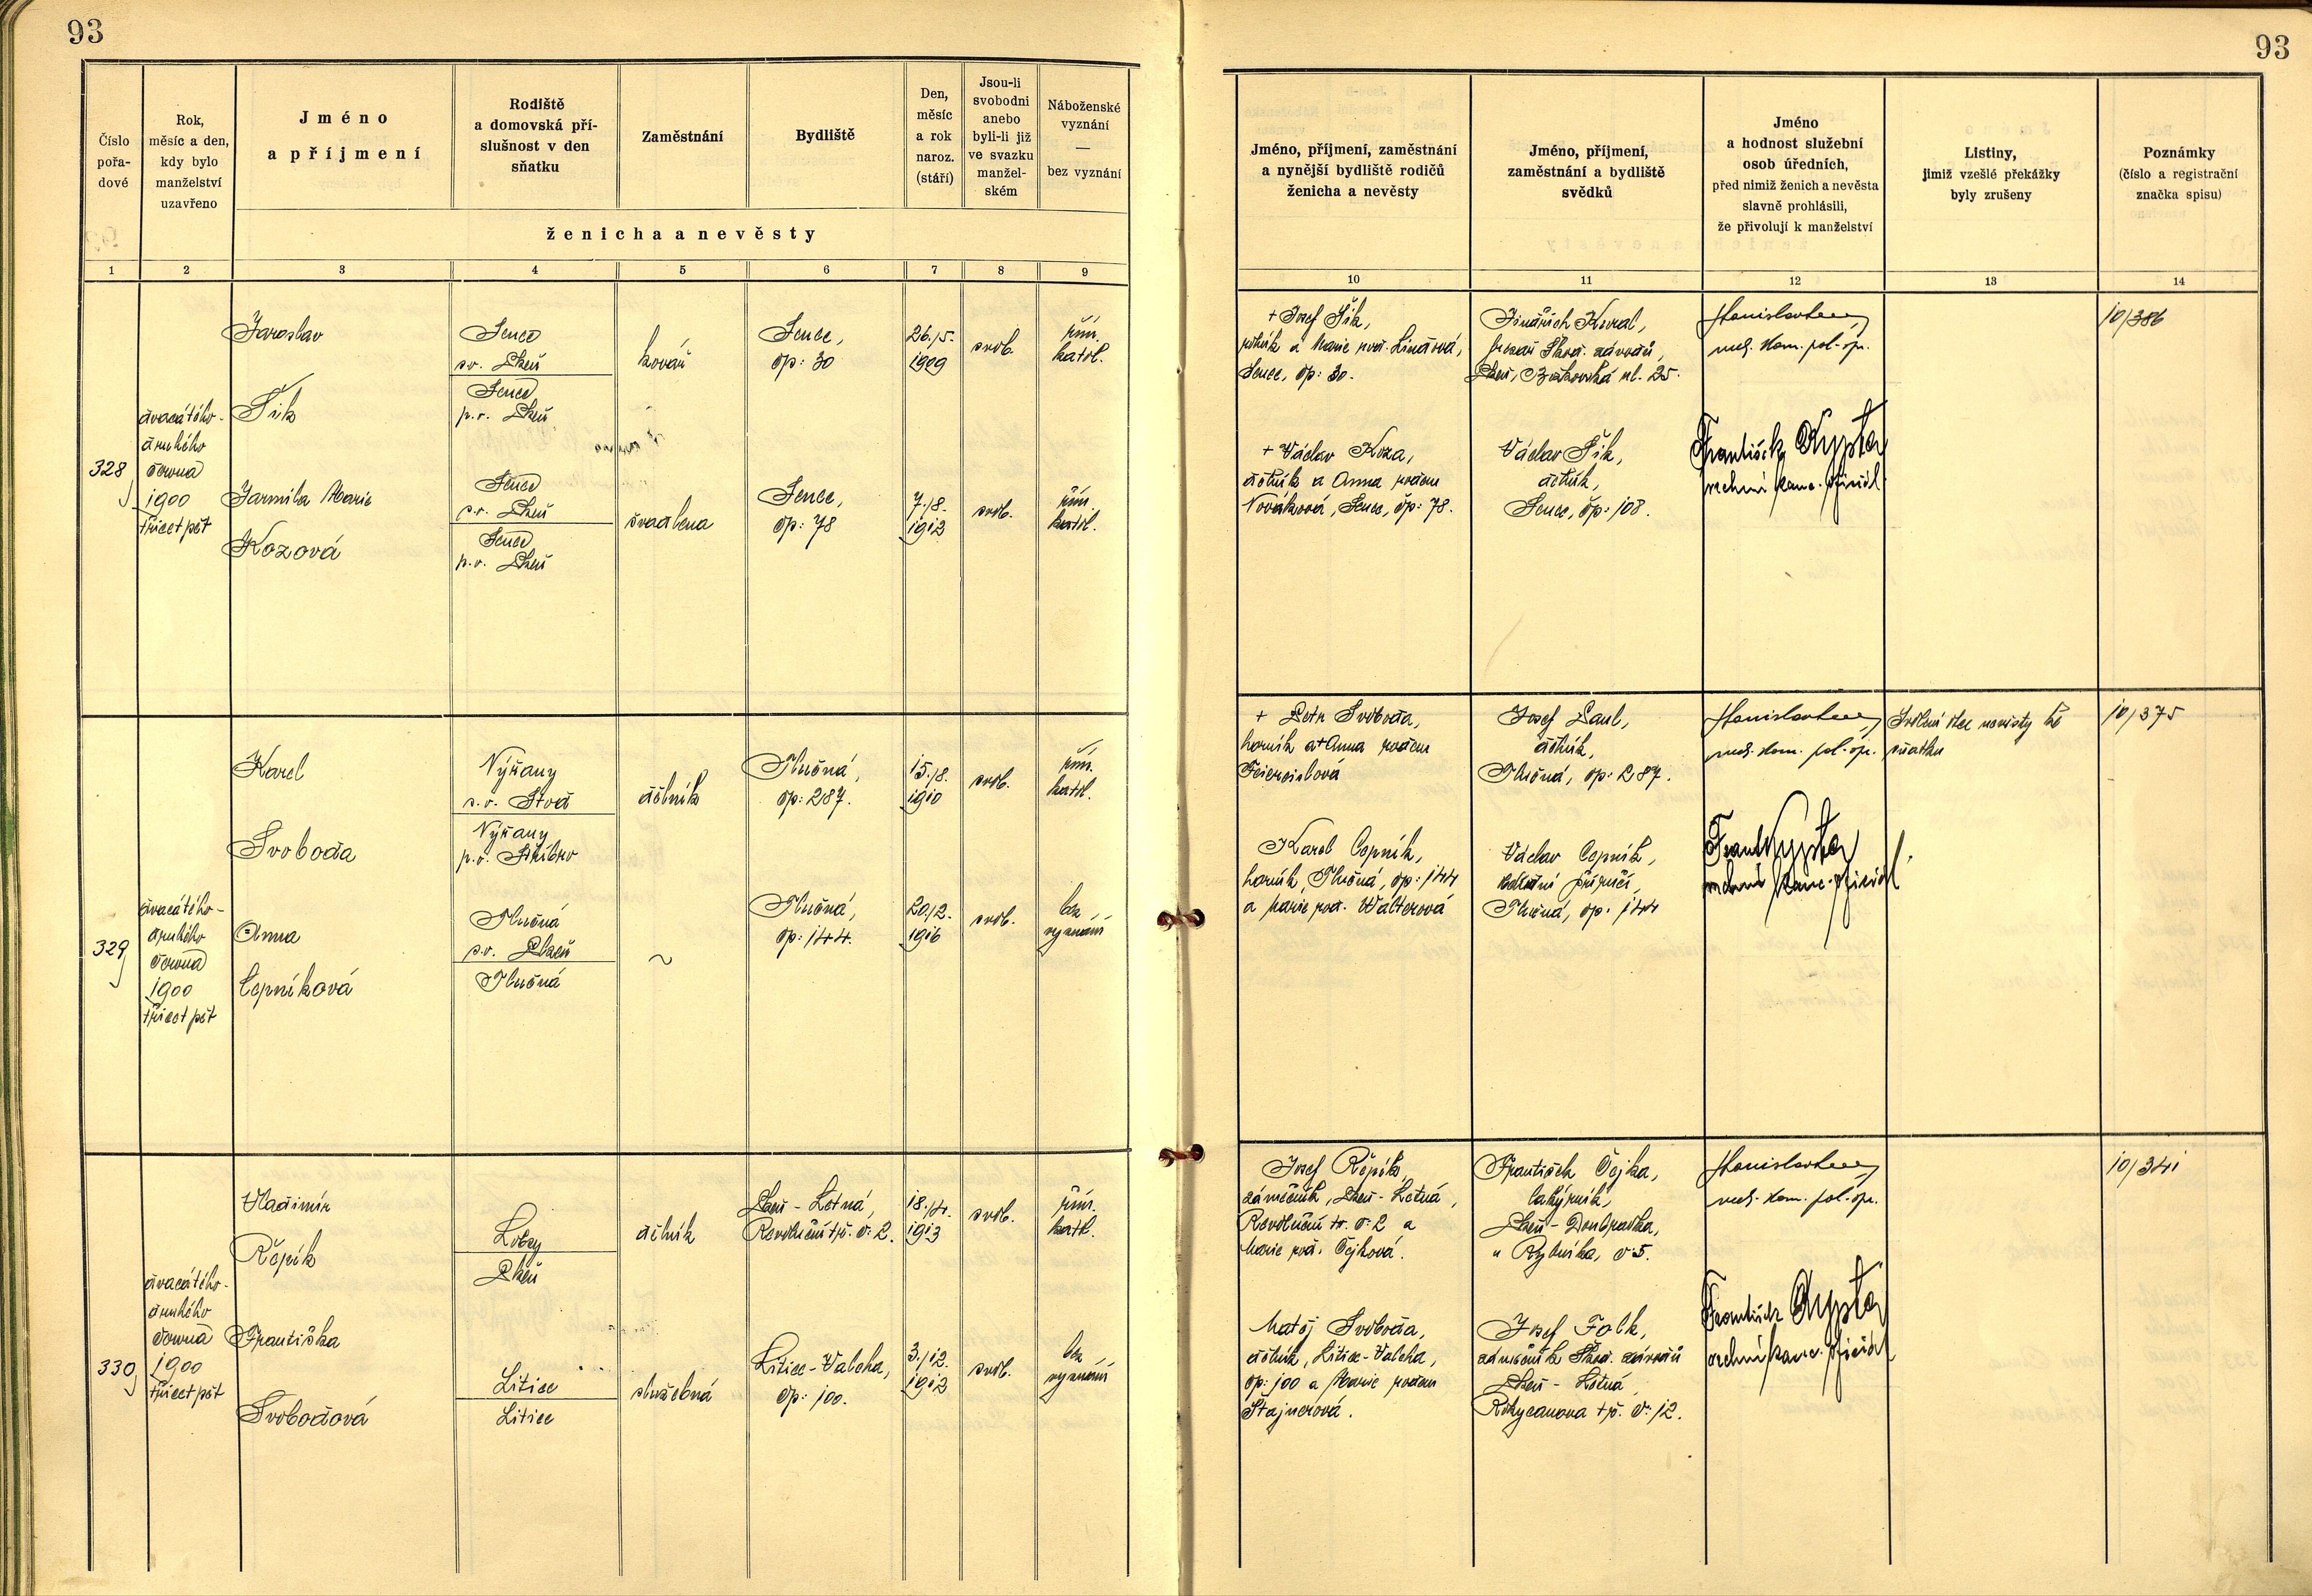 93
93
Číslo
pořa-
dové
Rok,
měsíc a den,
kdy bylo
manželství
uzavřeno
Jméno
a příjmení
Rodiště
a domovská pří-
slušnost v den
sňatku
Zaměstnání
Bydliště
Den,
měsíc
a rok
naroz.
(stáří)
Jsou-li
svobodni
anebo
byli-li již
ve svazku
manžel-
ském
Náboženské
vyznání
—
bez vyznání
ženicha a nevěsty
1 2 3 4 5 6 7 8 9
Jméno, příjmení, zaměstnání
a nynější bydliště rodičů
ženicha a nevěsty
Jméno, příjmení,
zaměstnání a bydliště
svědků
Jméno
a hodnost služební
osob úředních,
před nimiž ženich a nevěsta
slavně prohlásili,
že přivolují k manželství
Listiny,
jimiž vzešlé překážky
byly zrušeny
Poznámky
(číslo a registrační
značka spisu)
10 11 12 13 14
328
dvacátého-
druhého
června
1900
třicet pět
Jaroslav
Šik
Senec
s.o. Plzeň
Senec
p.o. Plzeň
kovář
Senec,
čp: 30
26./5.
1909
svob.
řím.
katol.
Jarmila Marie
Kozová
Senec
s.o. Plzeň
Senec
p.o. Plzeň
švadlena
Senec,
čp: 78
7./8.
1912
svob.
řím.
katol.
+ Josef Šik,
rolník a Marie roz.
Senec, čp: 30.
+ Václav Koza,
dělník a Anna rozen
Nováková, Senec, čp: 78.
Jindřich Kural,
Škod. závodů,
Plzeň, ul. 25.
Václav Šik,
dělník,
Senec, čp: 108.
rada kom. pol. sp.
František Kypta
vrchní kanc. oficiál
10/386
329
dvacátého-
druhého
června
1900
třicet pět
Karel
Svoboda
Výřany
s.o. Stod
Výřany
p.o. Stříbro
dělník
Tlučná,
čp: 287.
15./8.
1910
svob.
řím.
katol.
Anna
Cepníková
Tlučná
s.o. Plzeň
Tlučná
~
Tlučná,
čp: 144.
20./2.
1916
svob.
bez
vyznání
+ Petr Svoboda,
horník a + Anna rozen
Karel Cepník,
horník, Tlučná, čp: 144
a Marie roz. Walterová
Josef Paul,
dělník,
Tlučná, čp: 287.
Václav Cepník,
Tlučná, čp: 144
rada kom. pol. sp.
Frant Kypta
vrchní kanc. oficiál
Svolení otce nevěsty ke
sňatku
10/375
330
dvacátého-
druhého
června
1900
třicet pět
Vladimír
Řepík
Lobzy
Plzeň
dělník
Plzeň - Letná,
Revoluční tř. č: 2.
18./4.
1913
svob.
řím.
katol.
Františka
Svobodová
Litice
Litice
služebná
Litice-Valcha,
čp: 100.
3./12.
1912
svob.
bez
vyznání
Josef Řepík,
zámečník, Plzeň - Letná,
Revoluční tř. č: 2 a
Marie roz. Čejková.
Matěj Svoboda,
dělník, Litice-Valcha,
čp: 100 a Marie rozen
Štajnerová.
František Čejka,
lakýrník,
Plzeň - Doubravka,
u Rybníka, č: 5.
Josef Folk,
zámečník Škod. závodů
Plzeň - Letná,
Rokycanova tř. č: 12.
rada kom. pol. sp.
František Kypta
vrchní kanc. oficiál
10/341